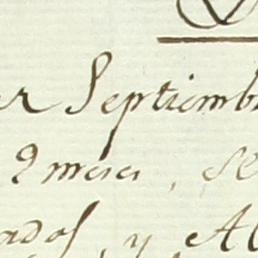 er Septiemb
2 meses, se
ados, y Al